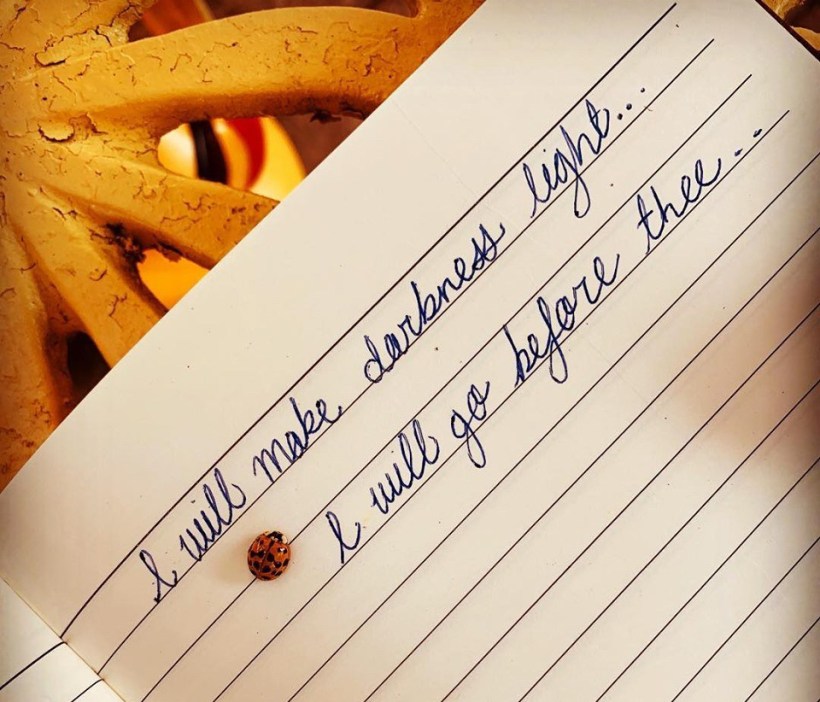 I will make darkness light...
I will go before thee...